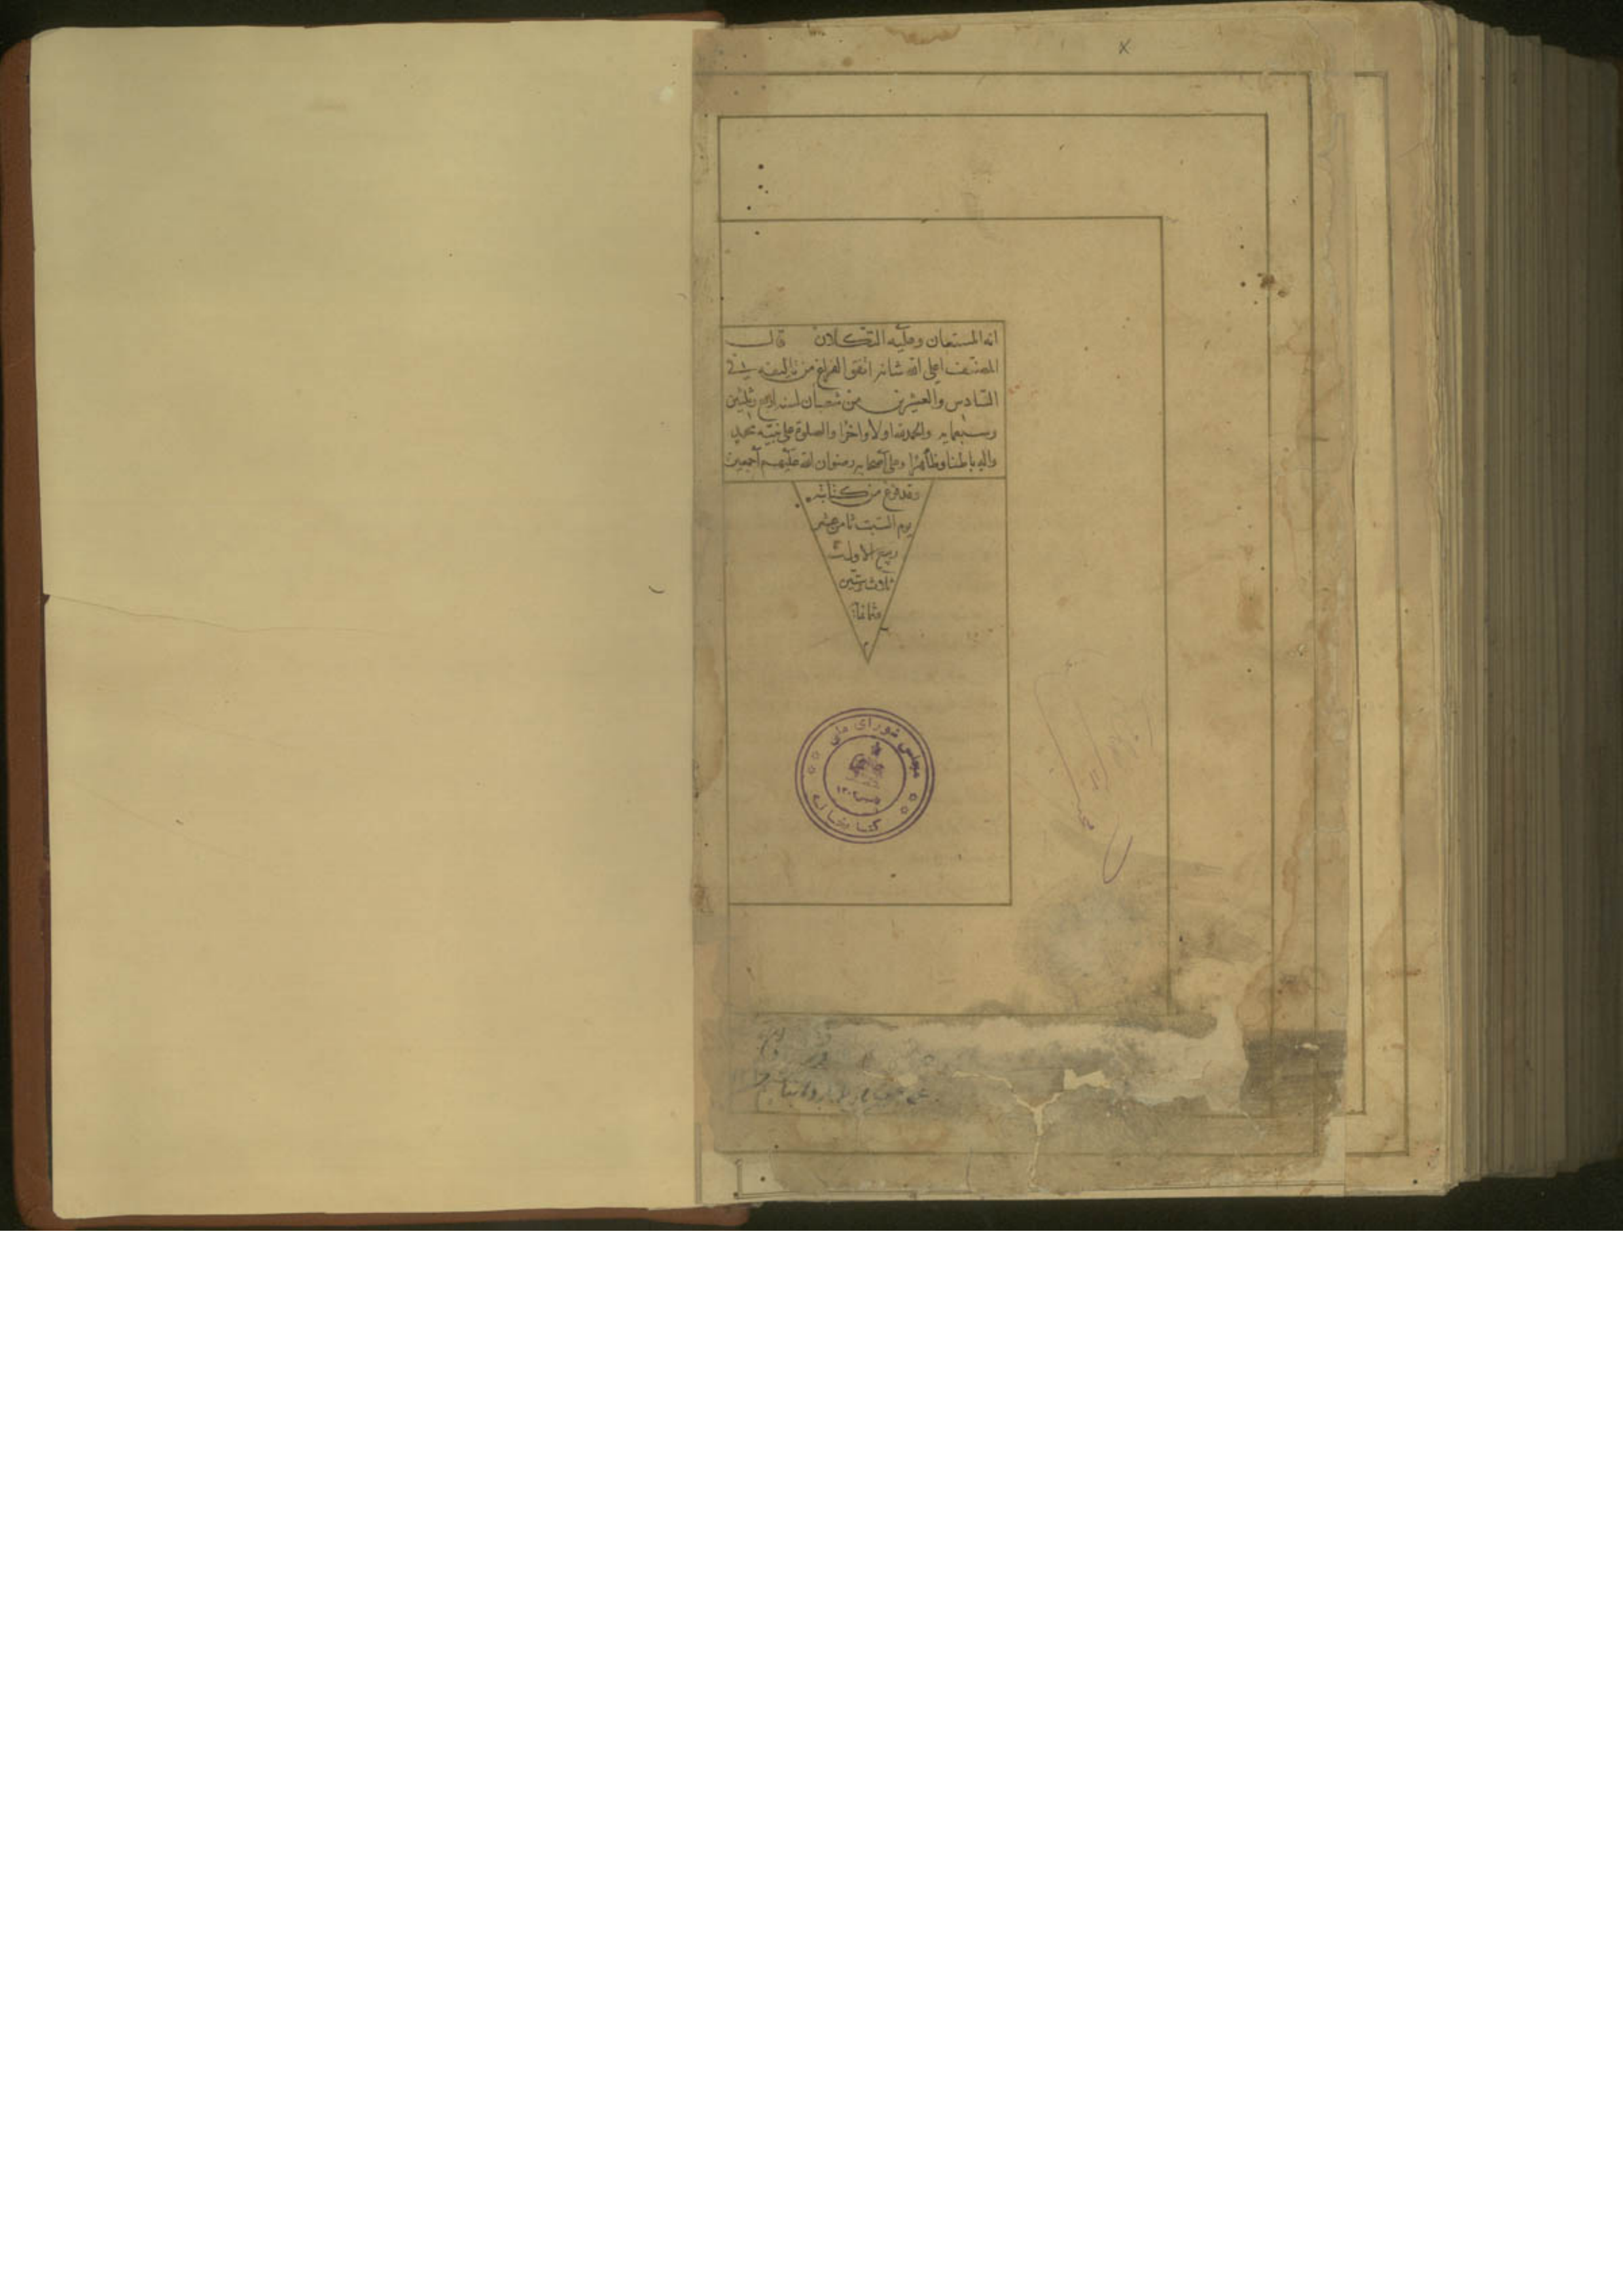 انه المستعان وعليه التكلان قال
المصنف اعلى الله شانه اتفق الفراغ من تاليفه في
السادس والعشرين من شعبان لسنه اربع وثلثين
وسبعمايه والحمدلله اولا واخرا والصلوة على نبيه محمد
واله باطنا وظاهرا وعلى اصحابه رضوان الله عليهم اجمعين
وقد فرغ من كتابته
يوم السبت ثامن عشر
ربيع الاول
ثلاث وستين
وثمانمائة
مجلس شورای ملی
۱۳۰۲
کتابخانه